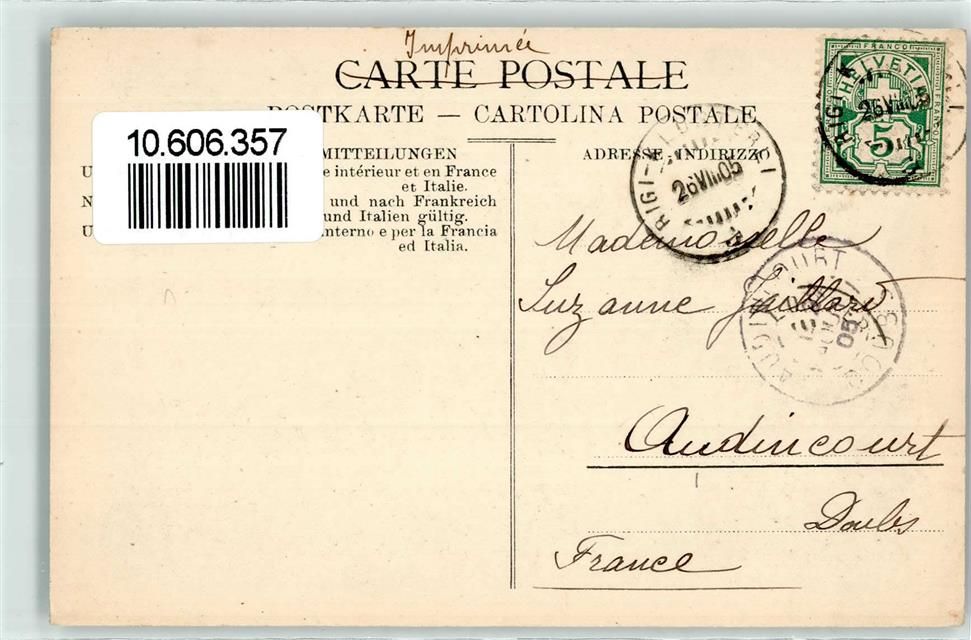 Imprimée
CARTE POSTALE
POSTKARTE — CARTOLINA POSTALE
10.606.357
MITTEILUNGEN
ADRESSE INDIRIZZO
intérieur et en France
et Italie.
und nach Frankreich
und Italien gültig.
interno e per la Francia
ed Italia.
FRANCO
HELVETIA
5
RIGI
26 VIII 05
RIGI-KALTBAD
26 VIII 05
Mademoiselle
Suzanne
AUDINCOURT
DOUBS
05
Audincourt
Doubs
France